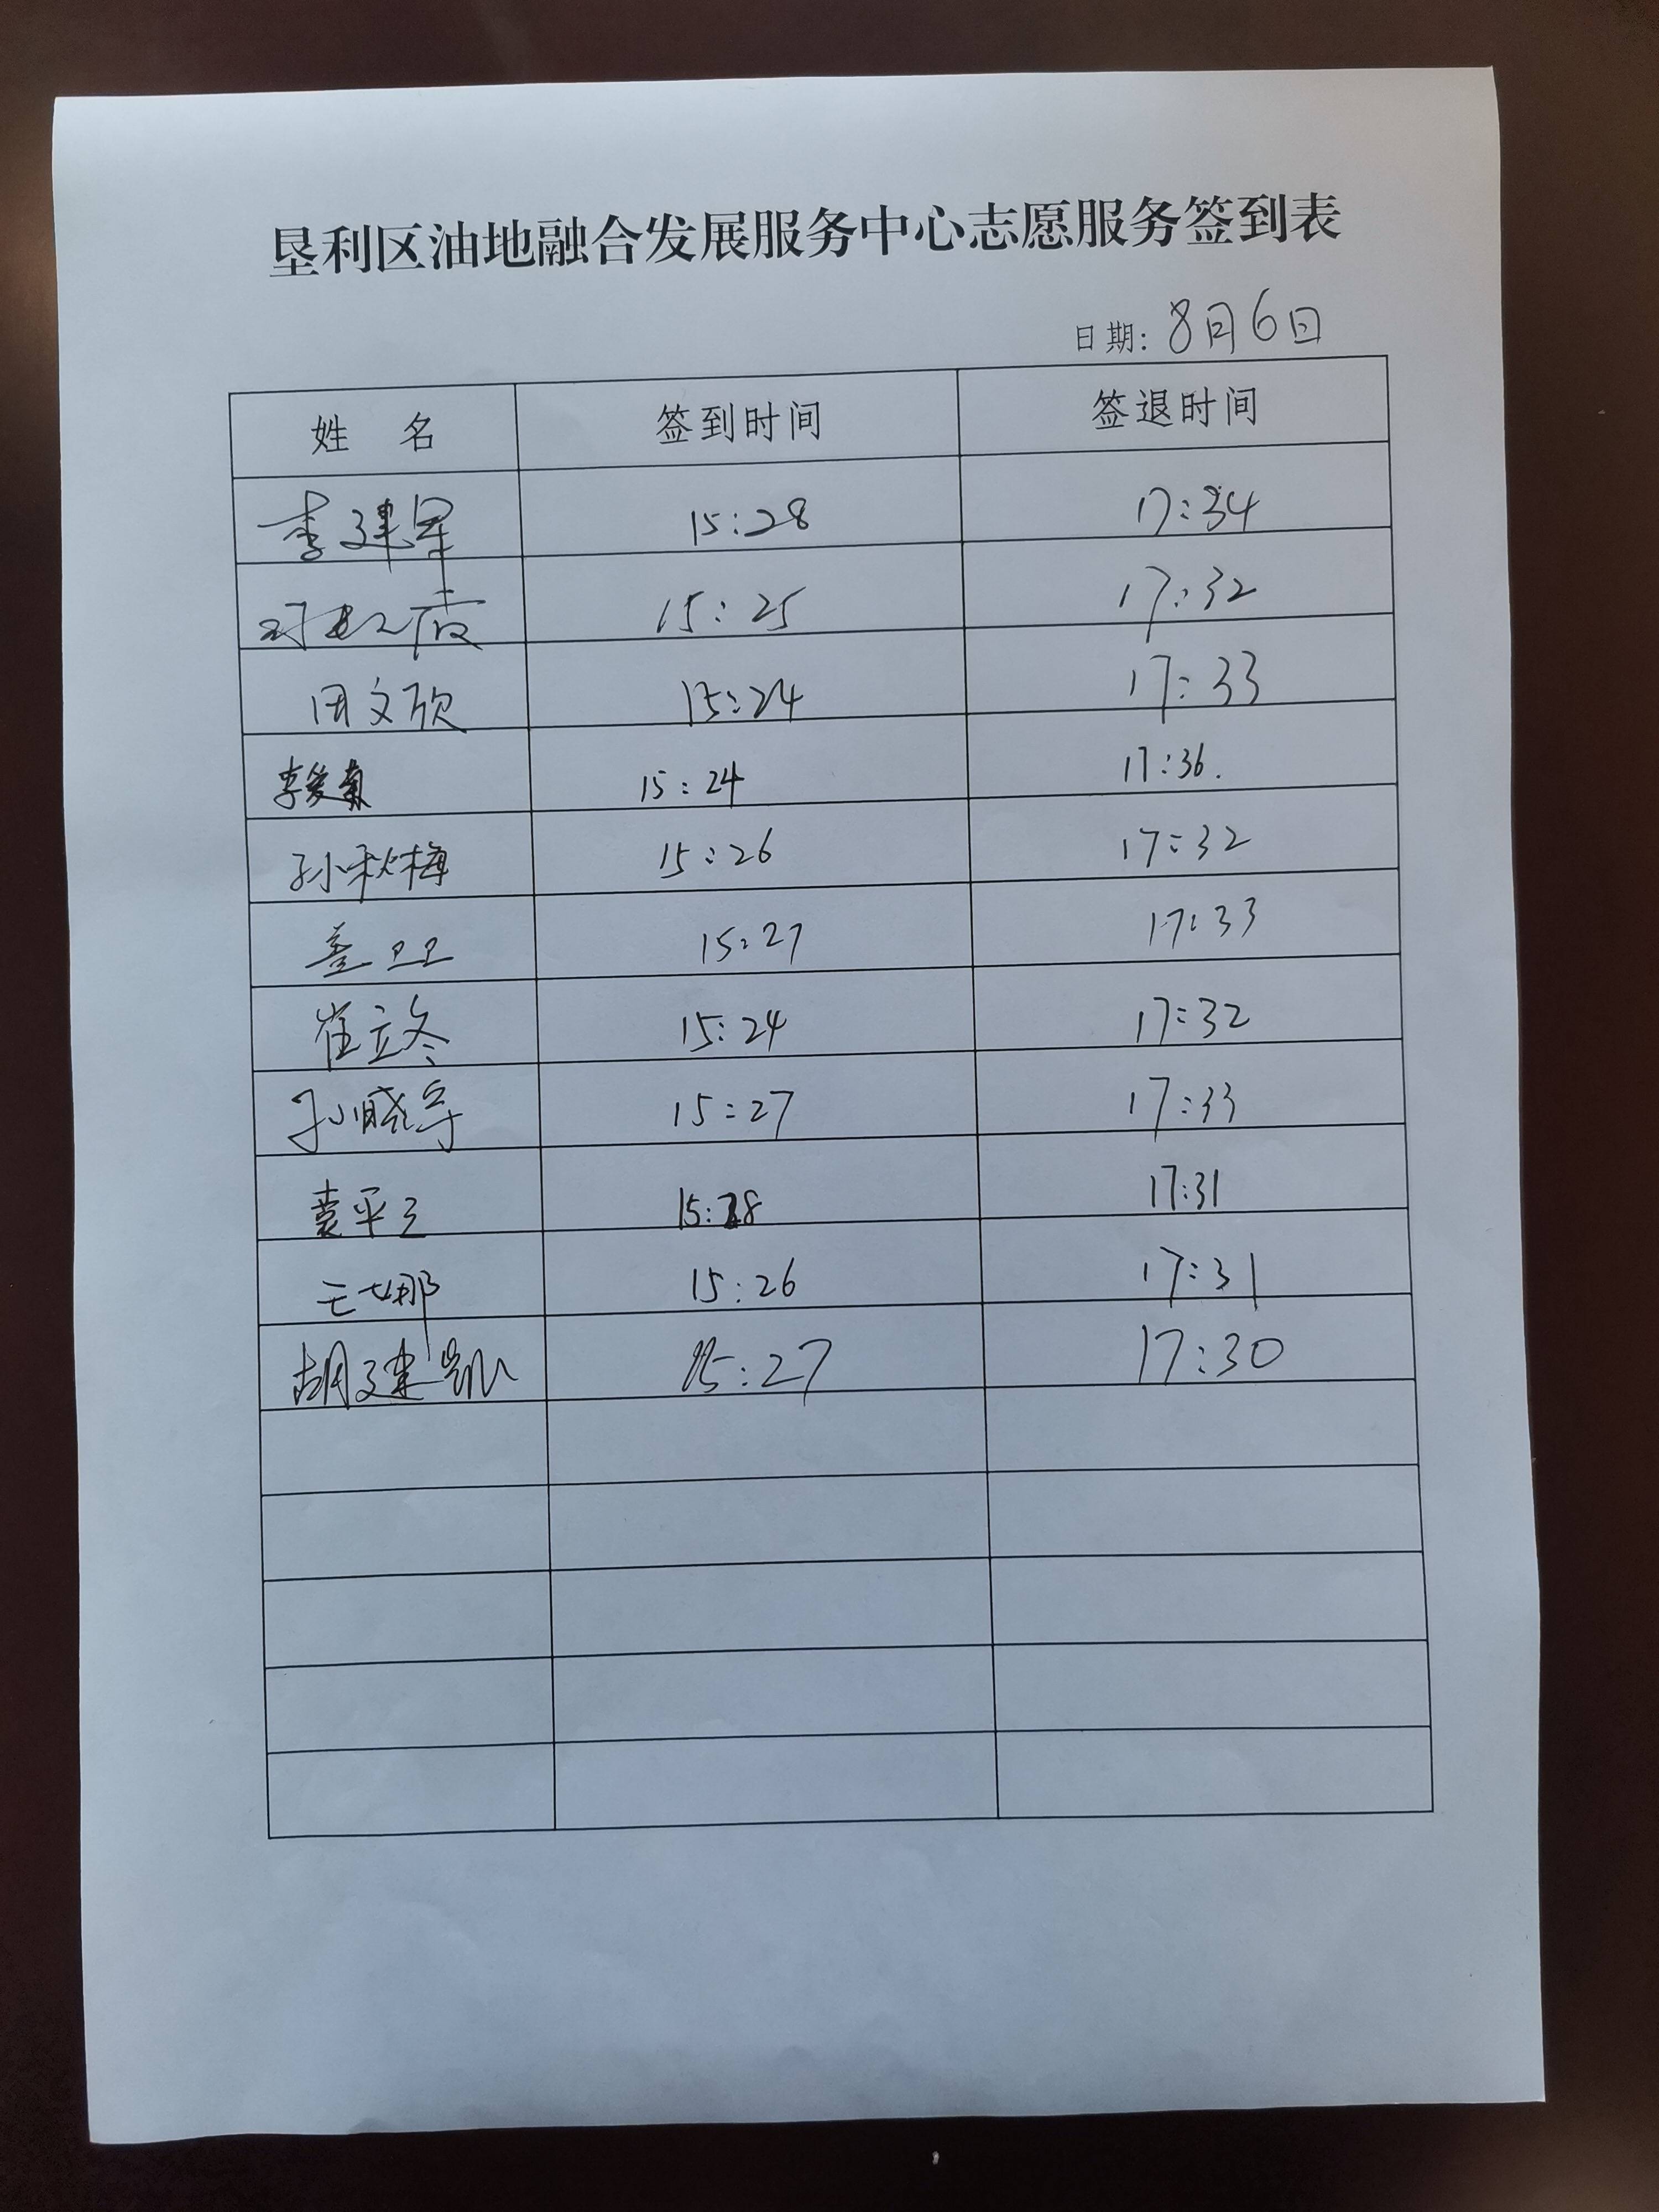 垦利区油地融合发展服务中心志愿服务签到表
日期: 8月6日
姓 名 签到时间 签退时间
李建军 15:28 17:34
15:25 17:32
田文欣 15:24 17:33
李爱菊 15:24 17:36.
孙秋梅 15:26 17:32
15:27 17:33
崔立冬 15:24 17:32
孙晓 15:27 17:33
袁平 15:28 17:31
王娜 15:26 17:31
胡建凯 15:27 17:30